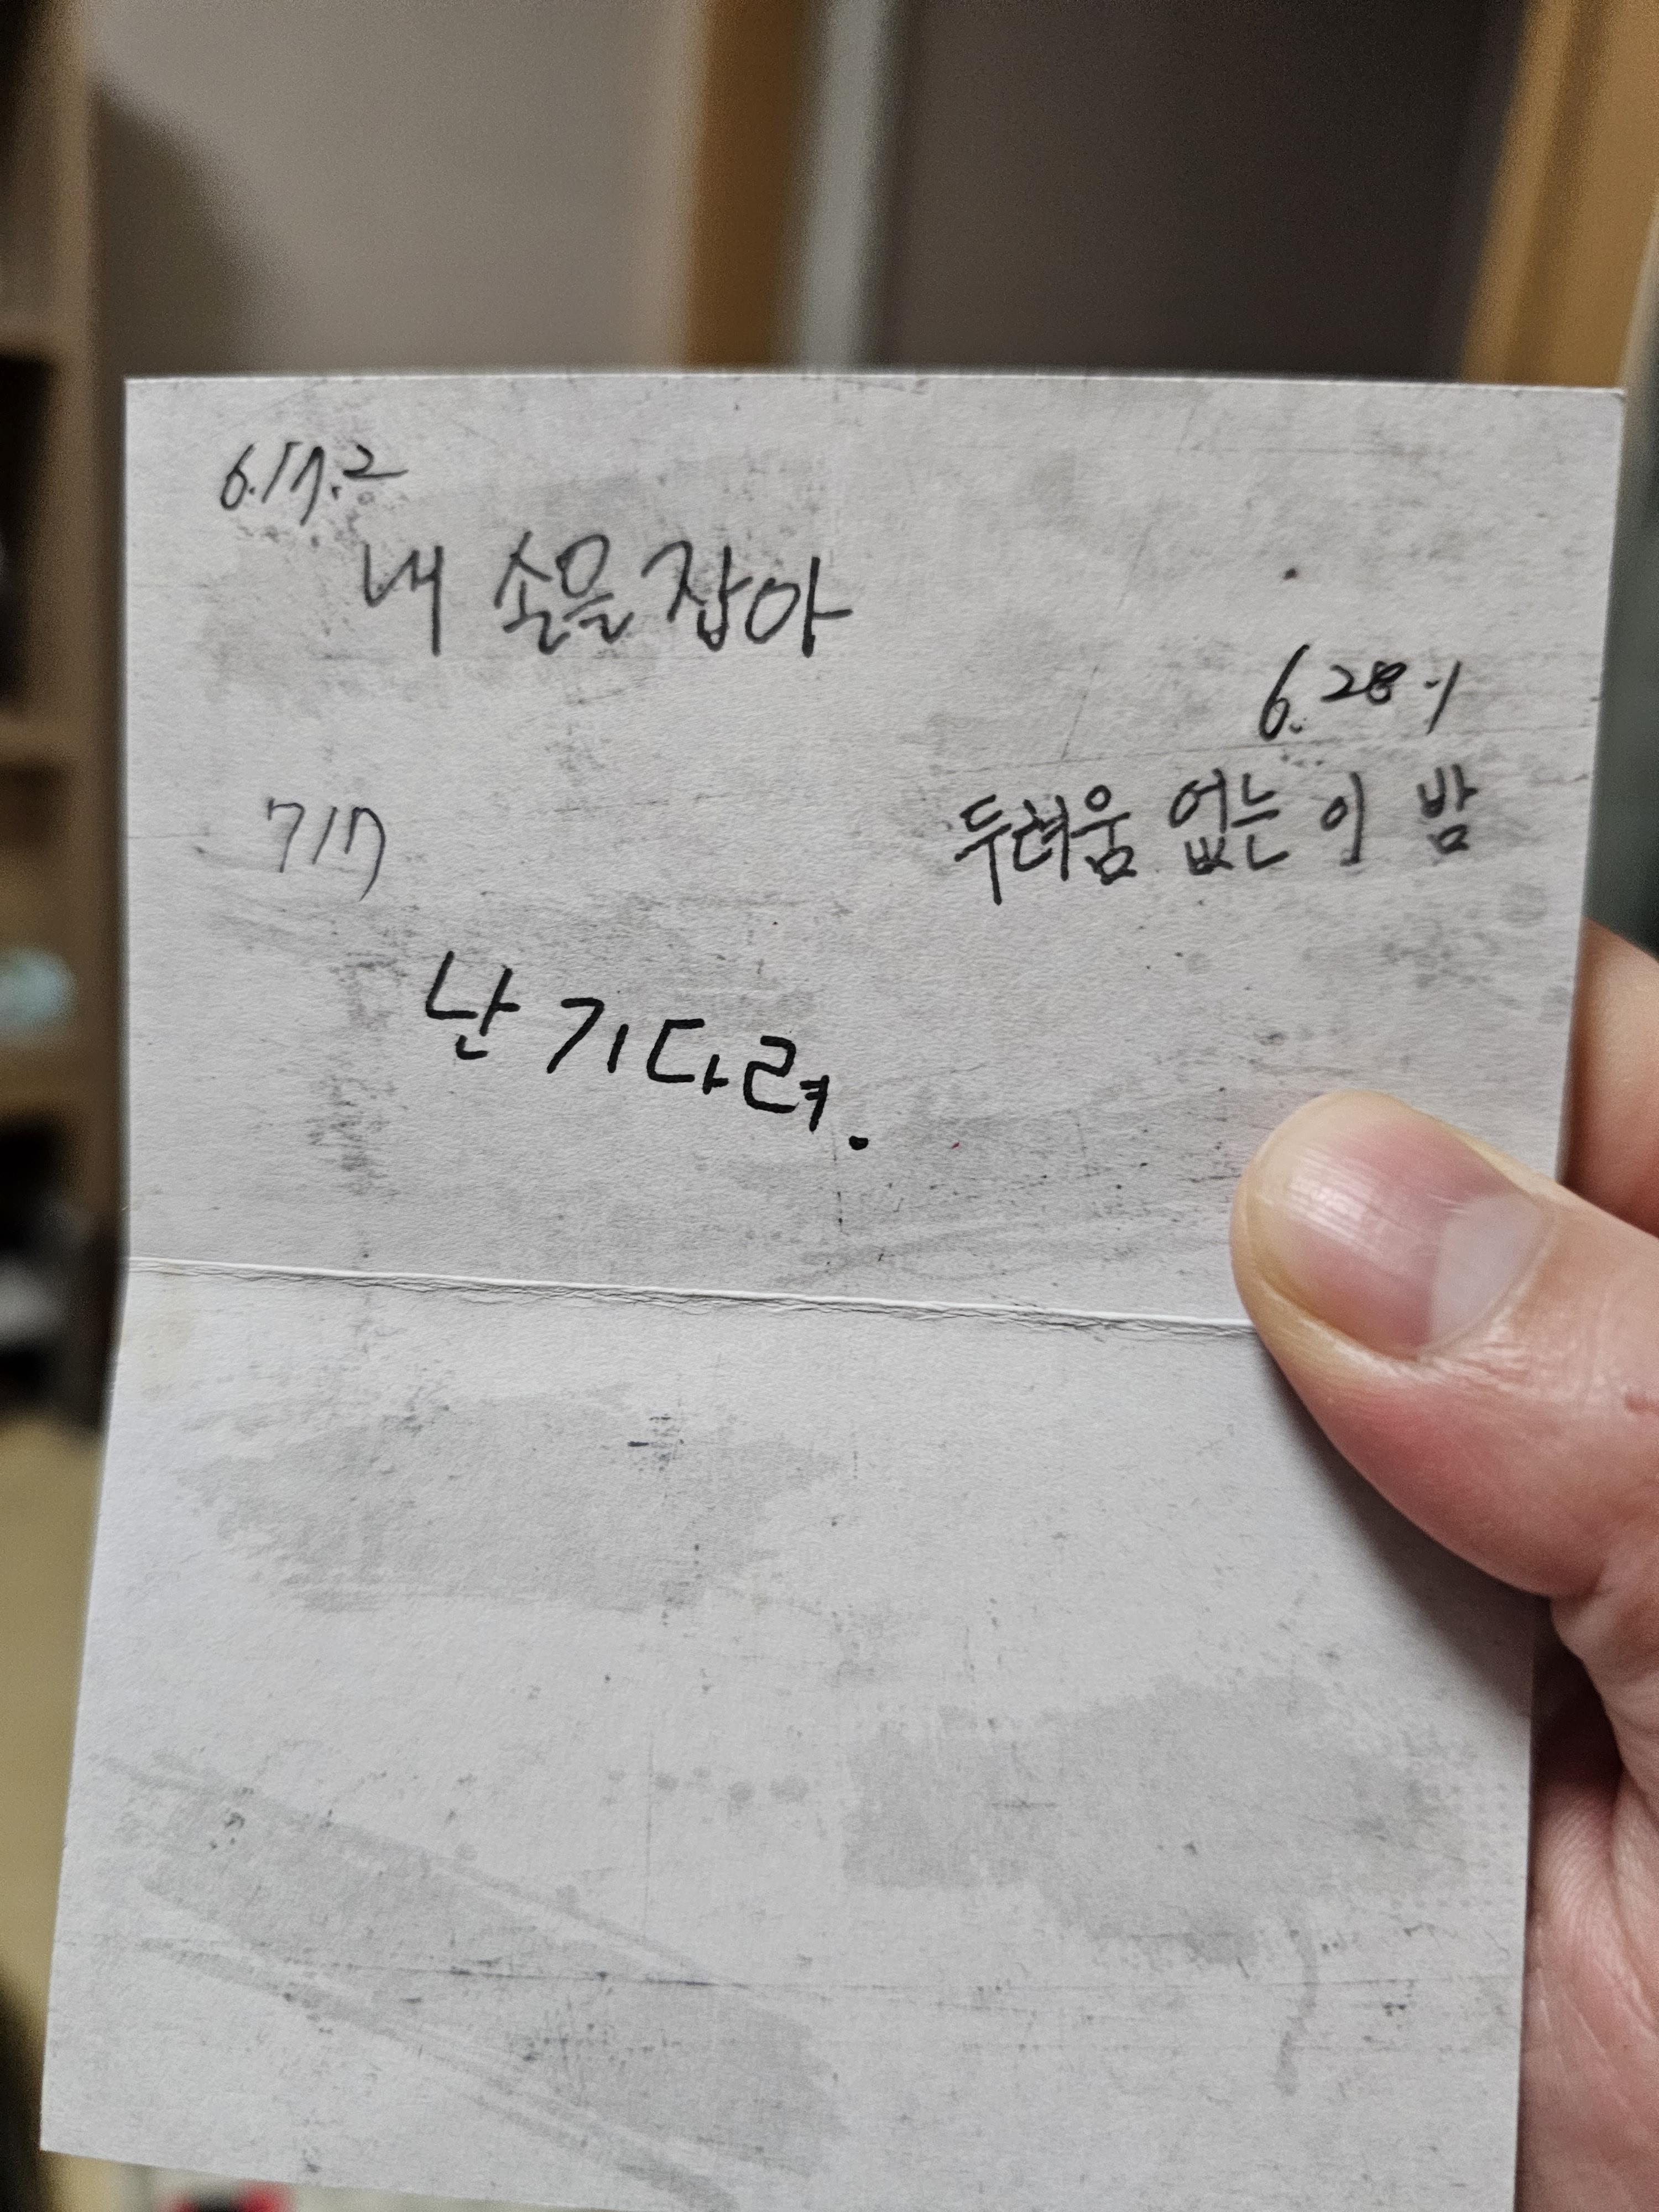 6.17.2
내 손을 잡아
6.28.1
두려움 없는 이 밤
7/17
난 기다려.